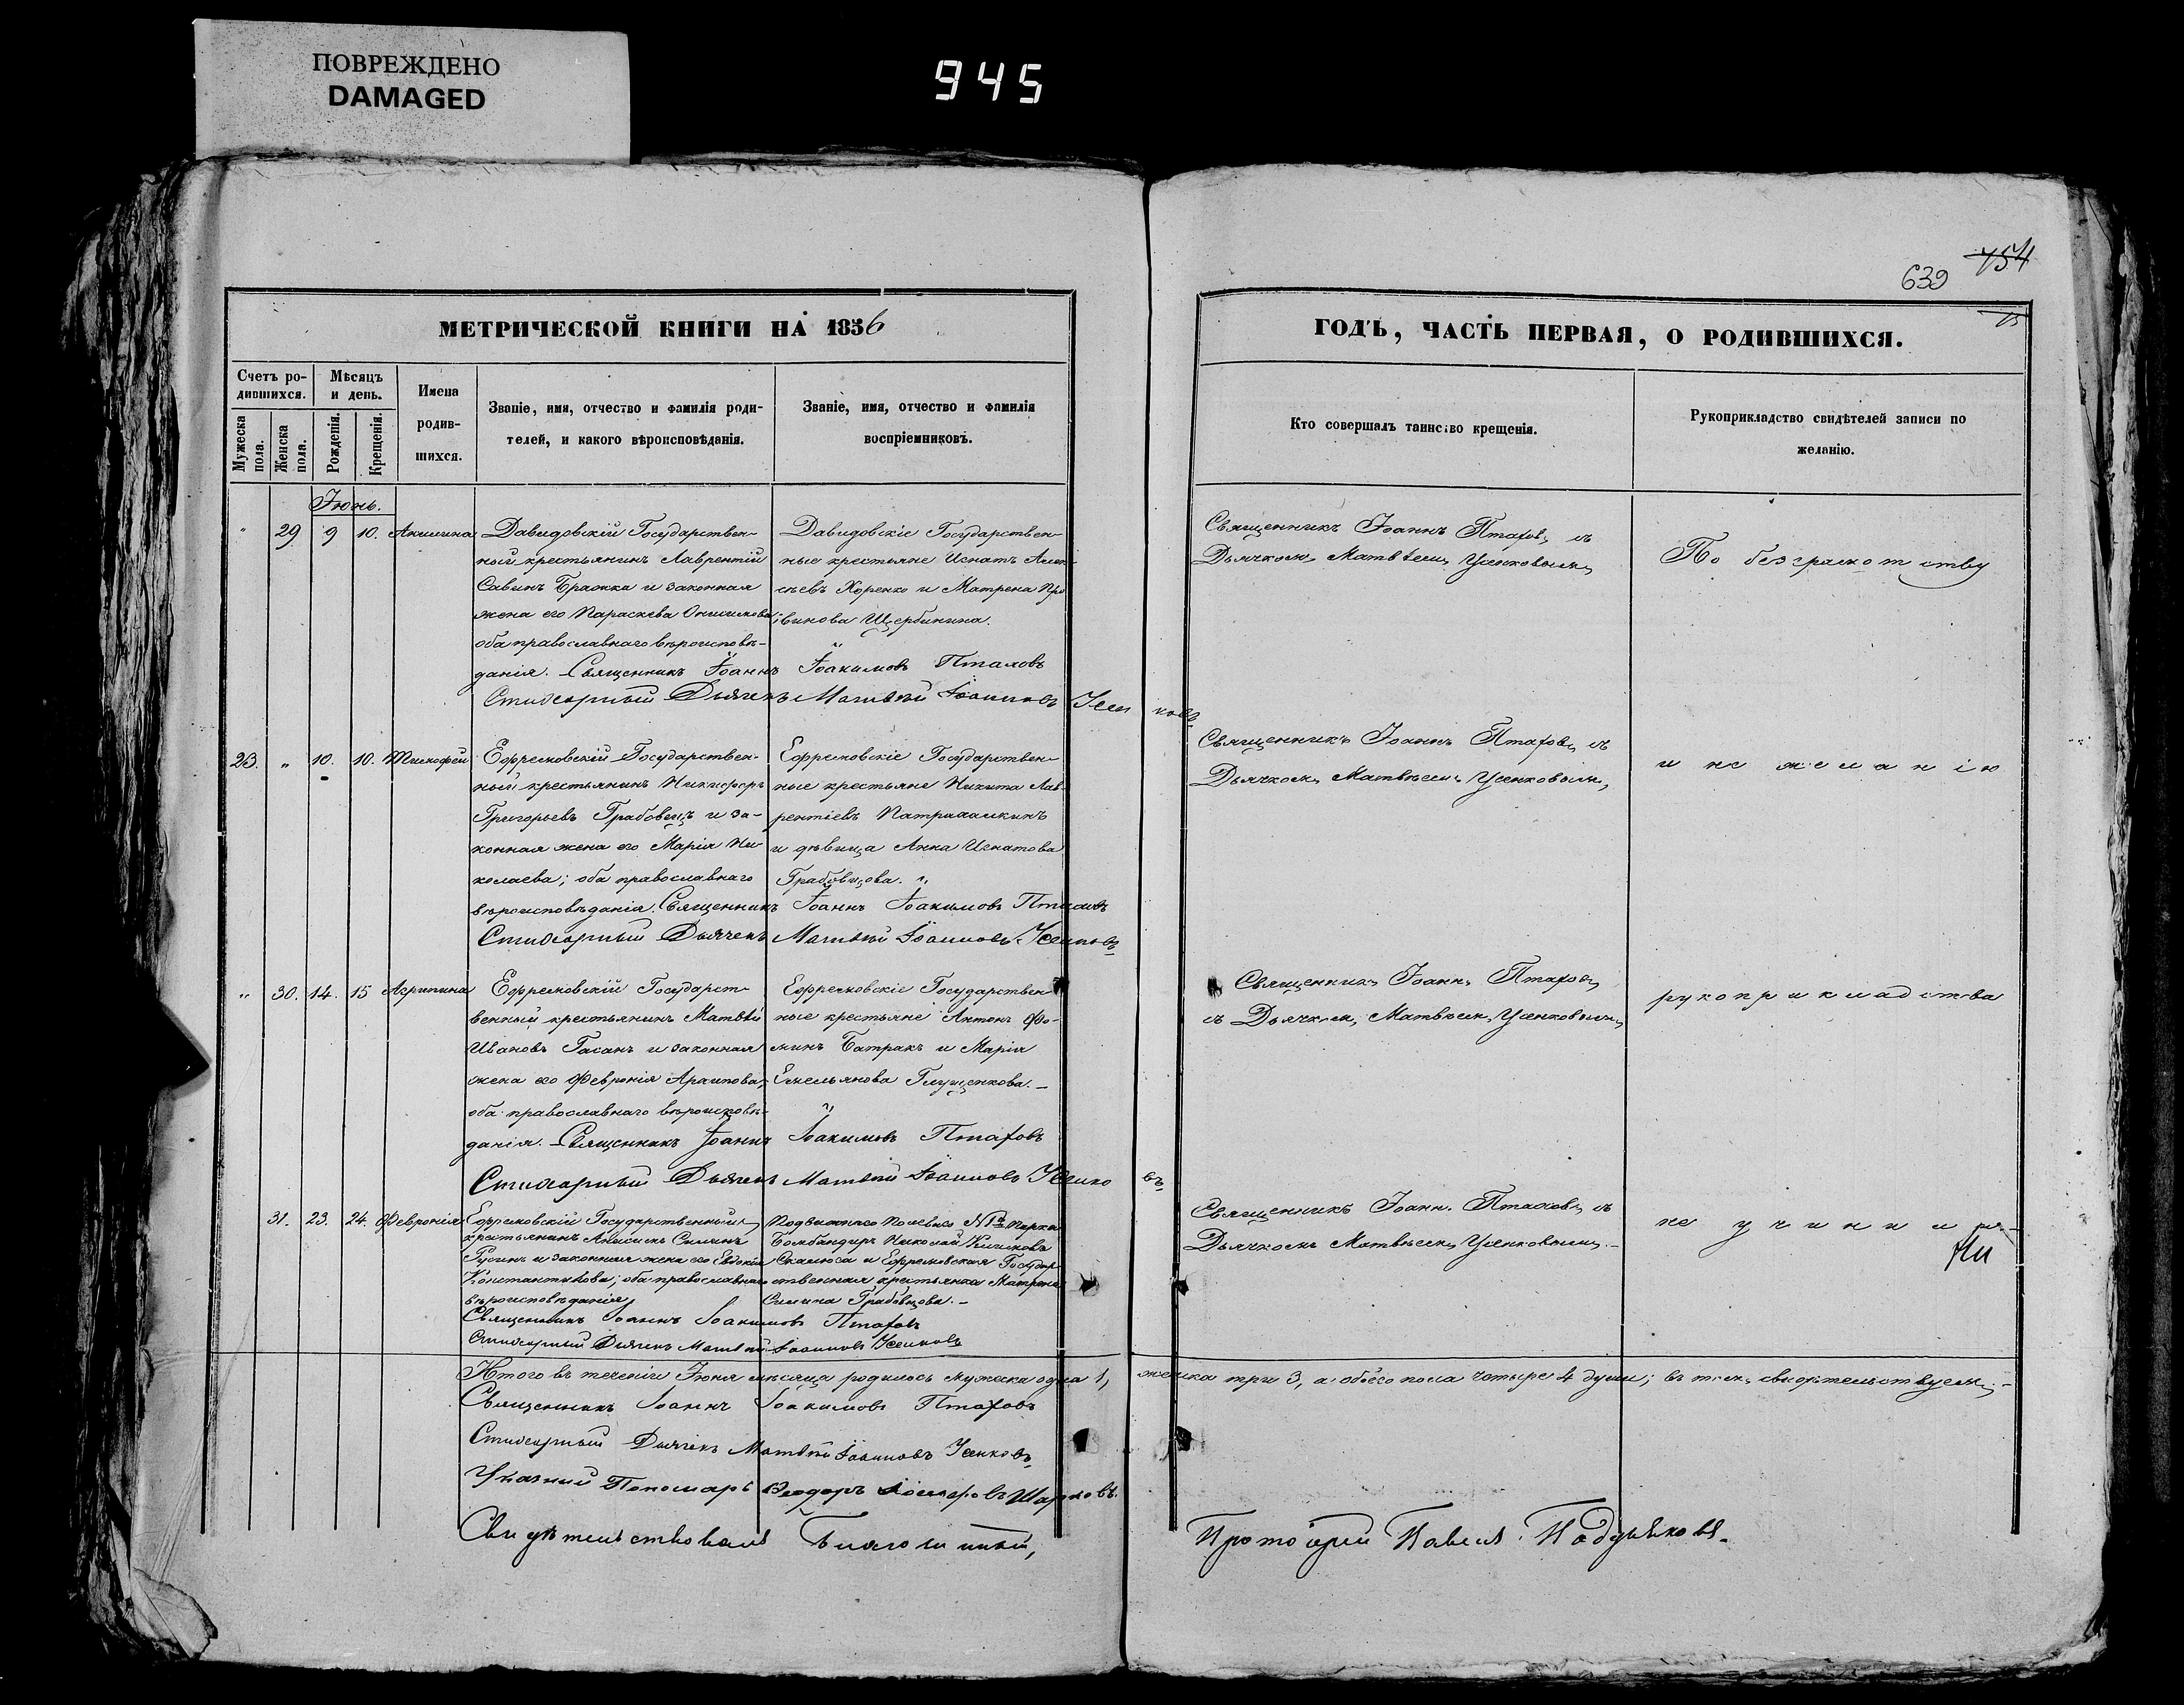 ПОВРЕЖДЕНО
DAMAGED
945
639 154
МЕТРИЧЕСКОЙ КНИГИ НА 1856
Счетъ родившихся.
Мужеска пола.
Женска пола.
Мѣсяцъ и день.
Рожденія.
Крещенія.
Имена родившихся.
Званіе, имя, отчество и фамилія родителей, и какого вѣроисповѣданія.
Званіе, имя, отчество и фамилія воспріемниковъ.
Іюнь.
" 29 9 10. Акилина
Давидовскій Государствен-
ный крестьянинъ Лаврентій
Савинъ Бражка и законная
жена его Параскева Онисимова;
оба православнаго вѣроисповѣ-
данія. Священникъ Іоаннъ Іоакимовъ Птаховъ
Стихарный Дьячекъ Матвѣй Іоанновъ Усенковъ
Давидовскіе Государствен-
ные крестьяне Игнатъ Алек-
сѣевъ Хоренко и Матрена
Щербинина.
23. " 10. 10. Тимофей
Ефремовскій Государствен-
ный крестьянинъ Никифоръ
Григорьевъ Грабовецъ и за-
конная жена его Марія Ни-
колаева; оба православнаго
вѣроисповѣданія. Священникъ Іоаннъ Іоакимовъ Птаховъ
Стихарный Дьячекъ Матвѣй Іоанновъ Усенковъ
Ефремовскіе Государствен-
ные крестьяне Никита Лав-
рентіевъ
и дѣвица Анна Игнатова
Грабовцова.
" 30. 14. 15 Агрипина
Ефремовскій Государст-
венный крестьянинъ Матвѣй
Ивановъ Гасанъ и законная
жена его Февронія Архипова;
оба православнаго вѣроисповѣ-
данія. Священникъ Іоаннъ Іоакимовъ Птаховъ
Стихарный Дьячекъ Матвѣй Іоанновъ Усенковъ
Ефремовскіе Государствен-
ные крестьяне Антонъ Фо-
минъ Батракъ и Марія
Емельянова Глущенкова.
31. 23. 24. Февронія
Ефремовскій Государственный
крестьянинъ Анисимъ Силинъ
и законная жена его Евдокія
Константинова; оба православнаго
вѣроисповѣданія
Священникъ Іоаннъ Іоакимовъ Птаховъ
Стихарный Дьячекъ Матвѣй Іоанновъ Усенковъ
Подвижнаго Полеваго № парка
Бомбандиръ Николай
и Ефремовская Государ-
ственная крестьянка Матрена
Силина Грабовцова.
Итого въ теченіи Іюня мѣсяца родилось мужеска одна 1, женска три 3, а обоего пола четыре 4 души; въ томъ свидѣтельствуемъ.
Священникъ Іоаннъ Іоакимовъ Птаховъ
Стихарный Дьячекъ Матвѣй Іоанновъ Усенковъ
Указный Пономарь Ѳеодоръ
Свидѣтельствовалъ Благочинный, Протоіерей Павелъ
ГОДЪ, ЧАСТЬ ПЕРВАЯ, О РОДИВШИХСЯ.
Кто совершалъ таинство крещенія.
Рукоприкладство свидѣтелей записи по желанію.
Священникъ Іоаннъ Птаховъ съ
Дьячкомъ Матвѣемъ Усенковымъ
По безграмотству
Священникъ Іоаннъ Птаховъ съ
Дьячкомъ Матвѣемъ Усенковымъ
и не желанію
Священникъ Іоаннъ Птаховъ
съ Дьячкомъ Матвѣемъ Усенковымъ
рукоприкладства
Священникъ Іоаннъ Птаховъ съ
Дьячкомъ Матвѣемъ Усенковымъ
не учинили